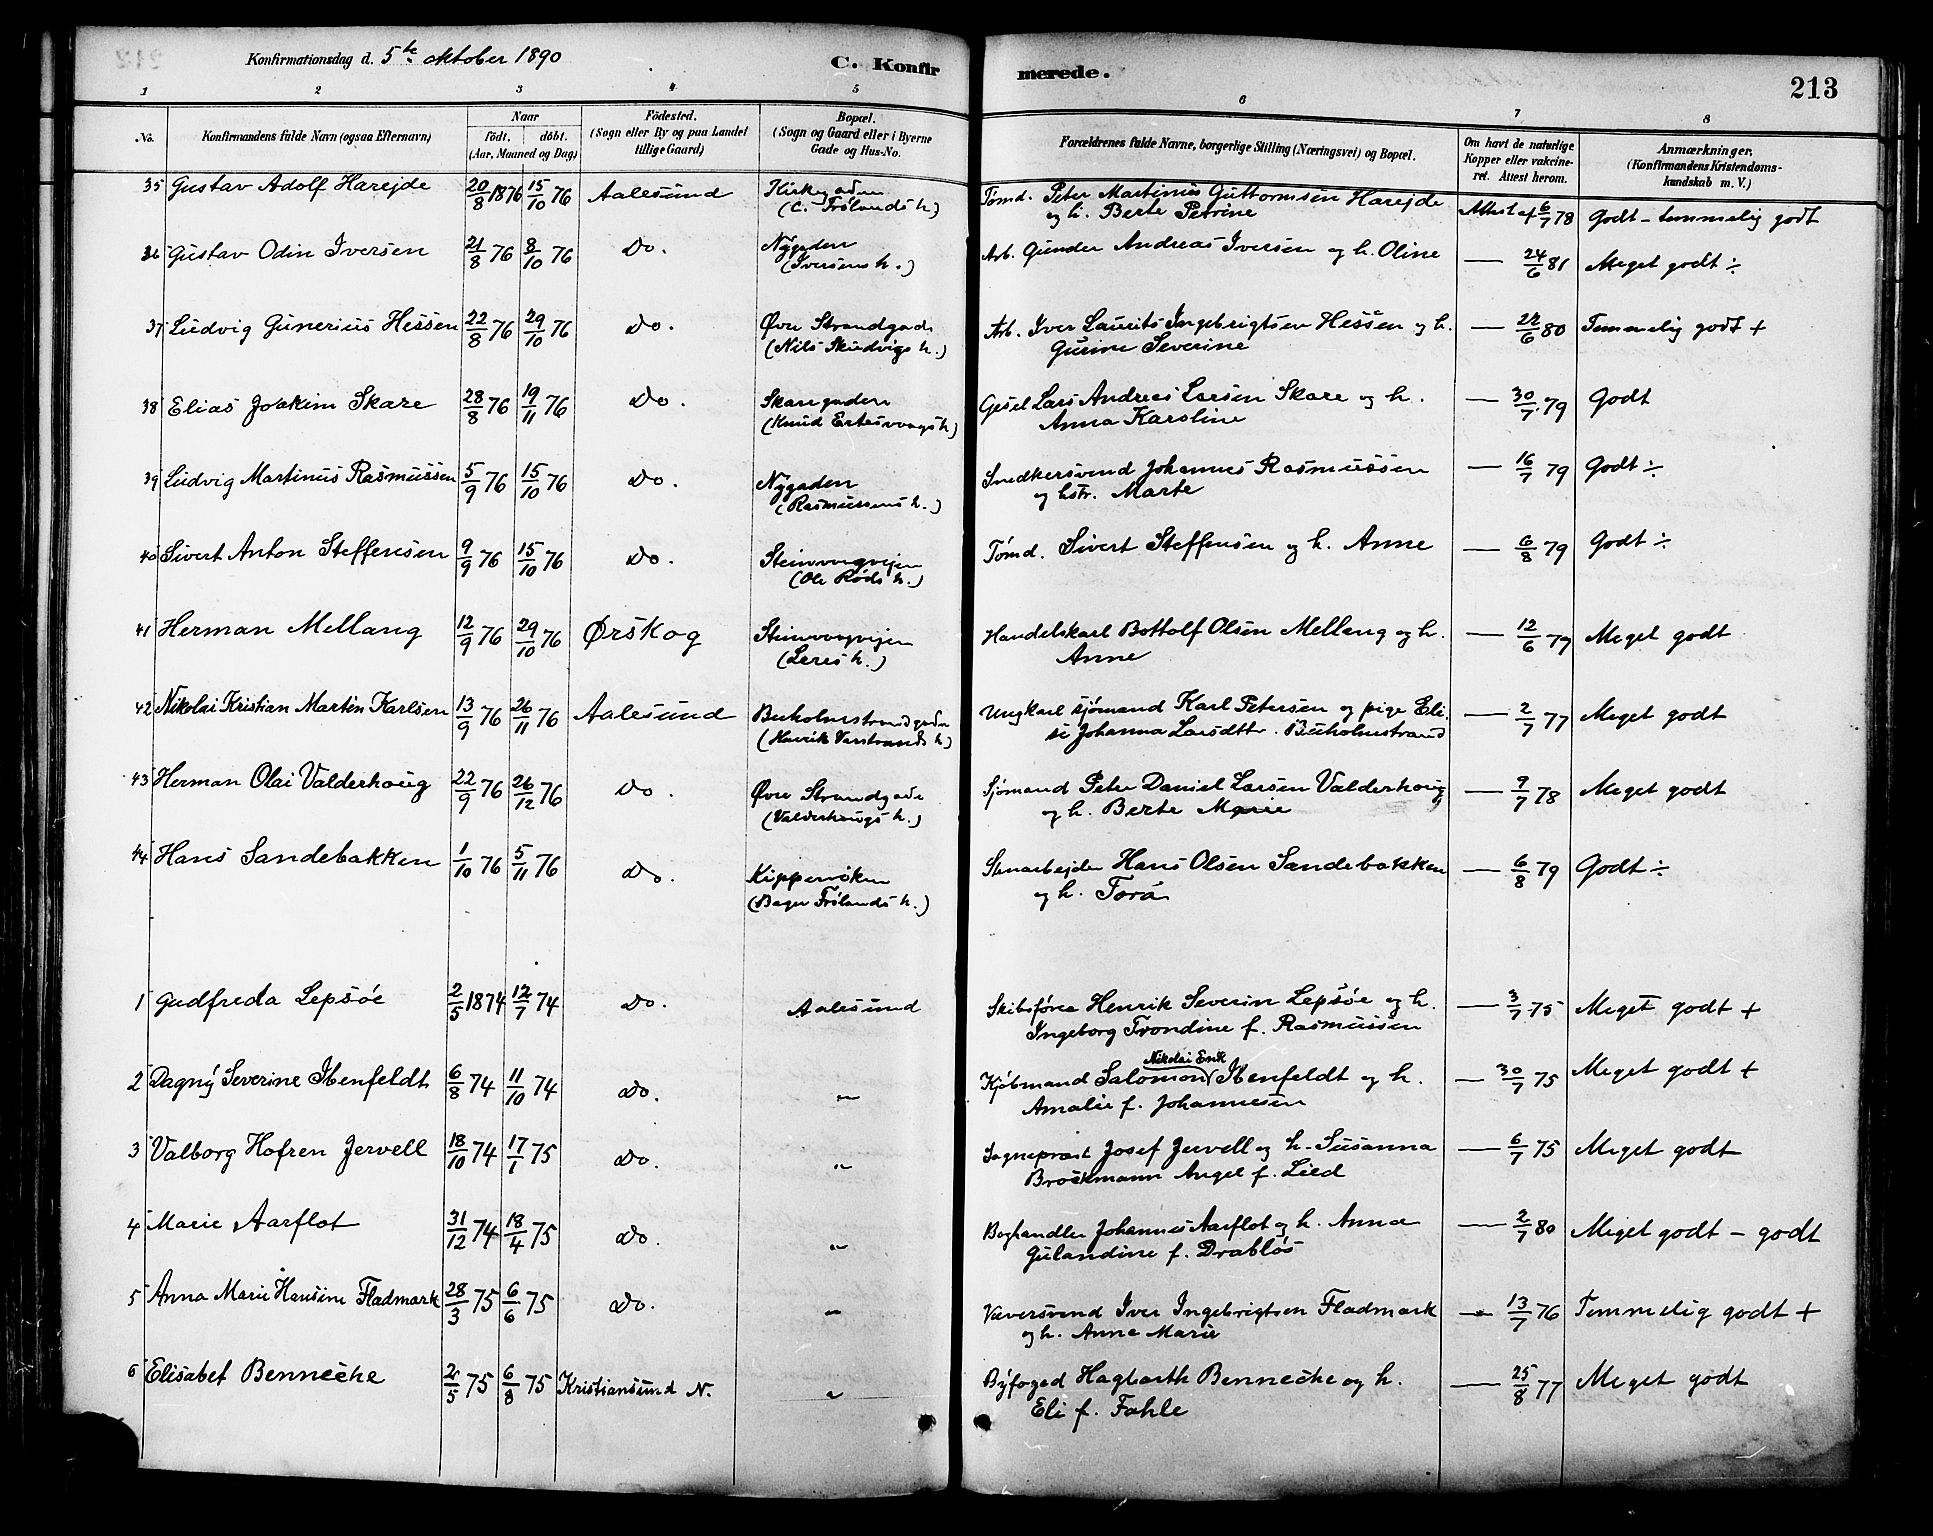 Konfirmationsdag d. 5te oktober 1890
C. Konfirmerede.
213
1 2 3 4 5 6 7 8
No. Konfirmandens fulde Navn (ogsaa Efternavn) Naar født. døbt. (Aar, Maaned og Dag) Fødested. (Sogn eller By og paa Landet tillige Gaard) Bopæl. (Sogn og Gaard eller i Byerne Gade og Hus-No. Forældrenes fulde Navne, borgerlige Stilling (Næringsvei) og Bopæl. Om havt de naturlige Kopper eller vakcineret. Attest herom. Anmærkninger. (Konfirmandens Kristendomskundskab m. V.)
35 Gustav Adolf Harejde 20/8 1876 15/10 76 Aalesund Kirkegaden Tømd. Peter Martinus Guttormsen Harejde Attest af 6/7 78 Godt - temmelig godt
(C. Frølands h.) og h. Berte Petrine
36 Gustav Odin Iversen 21/8 76 8/10 76 Do. Nygaden Arb. Gunder Andreas Iversen og h. Oline — 24/6 81 Meget godt ÷
(Iversens h.)
37 Ludvig Gunerius Hessen 22/8 76 29/10 76 Do. Øvre Strandgade Arb. Iver Laurits Ingebrigtsen Hessen og h. — 22/6 80 Temmelig godt +
(Nils Skudvigs h.) Gurine Severine
38 Elias Joakim Skare 28/8 76 19/11 76 Do. Skaregaden Gesel Lars Andreas Larsen Skare og h. — 30/7 79 Godt
(Knud Ertesvaags h) Anna Karoline
39 Ludvig Martinus Rasmussen 5/9 76 15/10 76 Do. Nygaden Snedkersvend Johannes Rasmussen — 16/7 79 Godt ÷
(Rasmussens h.) og hstr. Marte
40 Sivert Anton Steffensen 9/9 76 15/10 76 Do. Steinvaagvejen Tømd. Sivert Steffensen og h. Anne — 6/8 79 Godt ÷
(Ole Røds h.)
41 Herman Mellang 12/9 76 29/10 76 Ørskog Steinvaagvejen Handelskarl Bottolf Olsen Mellang og h. — 12/6 77 Meget godt
(Leres h.) Anne
42 Nikolai Kristian Martin Karlsen 13/9 76 26/11 76 Aalesund Buholmstrandgaden Ungkarl sjømand Karl Petersen og pige Eli — 2/7 77 Meget godt
se Johanna Larsdttr. Buholmstrand
43 Herman Olai Valderhoug 22/9 76 26/12 76 Do. Øvre Strandgade Sjømand Peter Daniel Larsen Valderhoug — 9/7 78 Meget godt
(Valderhougs h.) og h. Berte Marie
44 Hans Sandebakken 1/10 76 5/11 76 Do. Kipperviken Stenarbejder Hans Olsen Sandebakken — 6/8 79 Godt ÷
(Bager Frølands h.) og h. Tora
1 Gudfreda Lepsøe 2/5 1874 12/7 74 Do. Aalesund Skibsfører Henrik Severin Lepsøe og h. — 3/7 75 Meget godt +
Ingeborg Trondine f. Rasmussen
2 Dagny Severine Ibenfeldt 6/8 74 11/10 74 Do. " Kjøbmand Salomon Nikolai Enk Ibenfeldt og h. — 30/7 75 Meget godt +
Amalie f. Johannesen
3 Valborg Hofren Jervell 18/10 74 17/1 75 Do. " Sognepræst Josef Jervell og h. Susanna — 6/7 75 Meget godt
Brockmann Angel f. Lied
4 Marie Aarflot 31/12 74 18/4 75 Do. " Boghandler Johannes Aarflot og h. Anna — 2/7 80 Meget godt - godt
Gulandine f. Drabløs
5 Anna Marie Hansine Fladmark 28/3 75 6/6 75 Do. " Væversvend Iver Ingebrigtsen Fladmark — 13/7 76 Temmelig godt +
og h. Anne Marie
6 Elisabet Bennecke 2/5 75 6/8 75 Kristiansund N. " Byfoged Hagbarth Bennecke og h. — 25/8 77 Meget godt
Eli f. Fahle